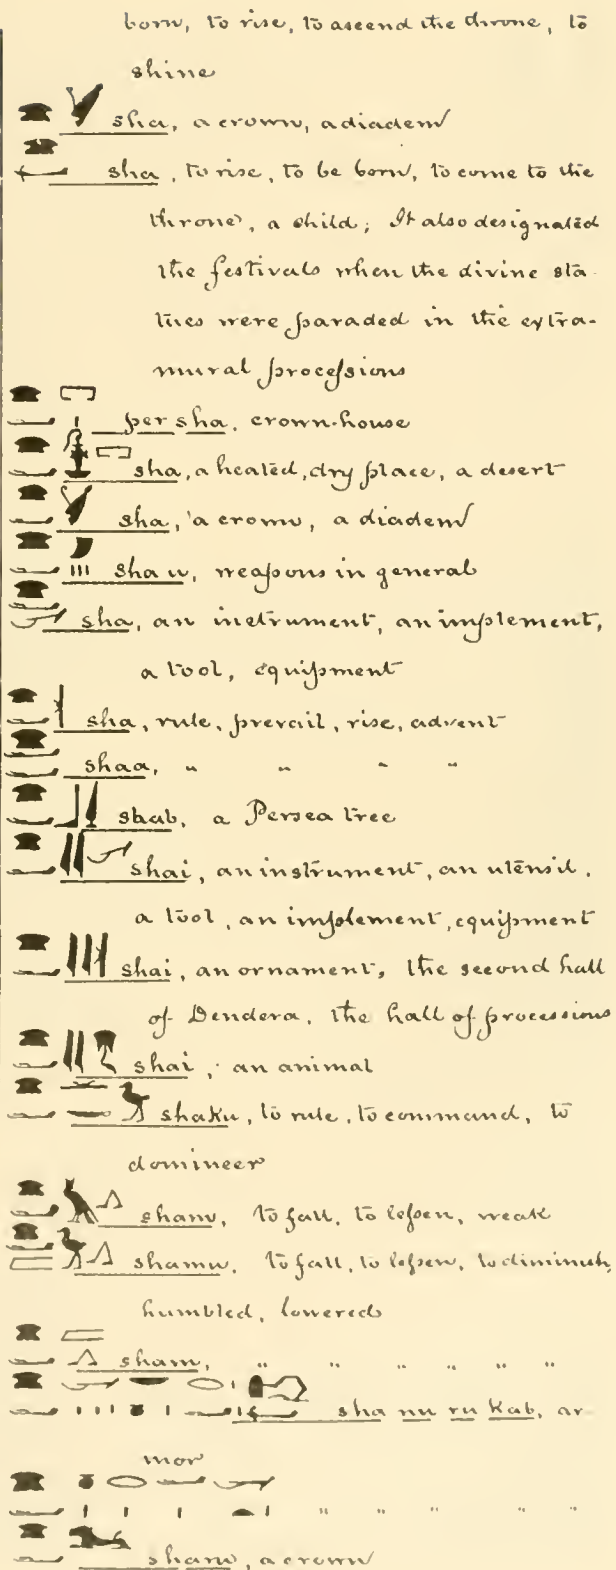 born, to rise, to ascend the throne, to
shine
sha, a crown, a diadem
sha, to rise, to be born, to come to the
throne, a child; It also designated
the festivals when the divine sta-
tues were paraded in the extra-
mural processions
per sha, crown-house
sha, a heated, dry place, a desert
sha, a crown, a diadem
sha u, weapons in general
sha, an instrument, an implement,
a tool, equipment
sha, rule, prevail, rise, advent
shaa, " " " "
shab, a Persea tree
shai, an instrument, an utensil,
a tool, an implement, equipment
shai, an ornament, the second hall
of Dendera, the hall of processions
shai, an animal
shaku, to rule, to command, to
domineer
sham, to fall, to lessen, weak
shamu, to fall, to lessen, to diminish,
humbled, lowered
sham, " " " " " "
sha nu ru kab, ar-
mor
" " " " "
sham, a crown